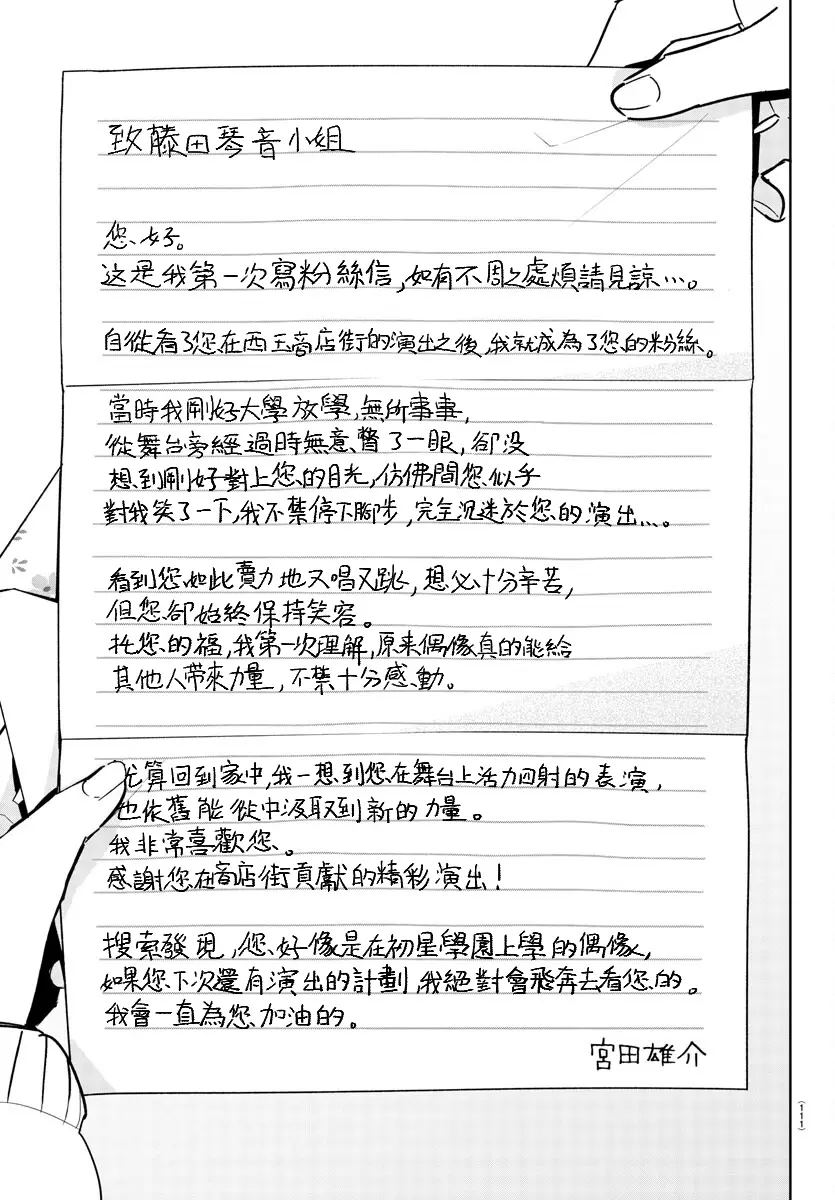 致藤田琴音小姐
您好。
这是我第一次寫粉絲信,如有不周之處煩請見諒…。
自從看了您在西玉商店街的演出之後,我就成為了您的粉絲。
當時我剛好大學放學,無所事事,
從舞台旁經過時無意瞥了一眼,卻没
想到剛好對上您的目光,仿佛間您似乎
對我笑了一下,我不禁停下腳步,完全沉迷於您的演出…。
看到您如此賣力地又唱又跳,想必十分辛苦,
但您卻始終保持笑容。
托您的福,我第一次理解,原来偶像真的能給
其他人帶來力量,不禁十分感動。
尤算回到家中,我一想到您在舞台上活力四射的表演,
也依舊能從中汲取到新的力量。
我非常喜歡您。
感謝您在商店街貢獻的精彩演出!
搜索發現,您好像是在初星學園上學的偶像,
如果您下次還有演出的計劃,我絕對會飛奔去看您的。
我會一直為您加油的。
宮田雄介
111